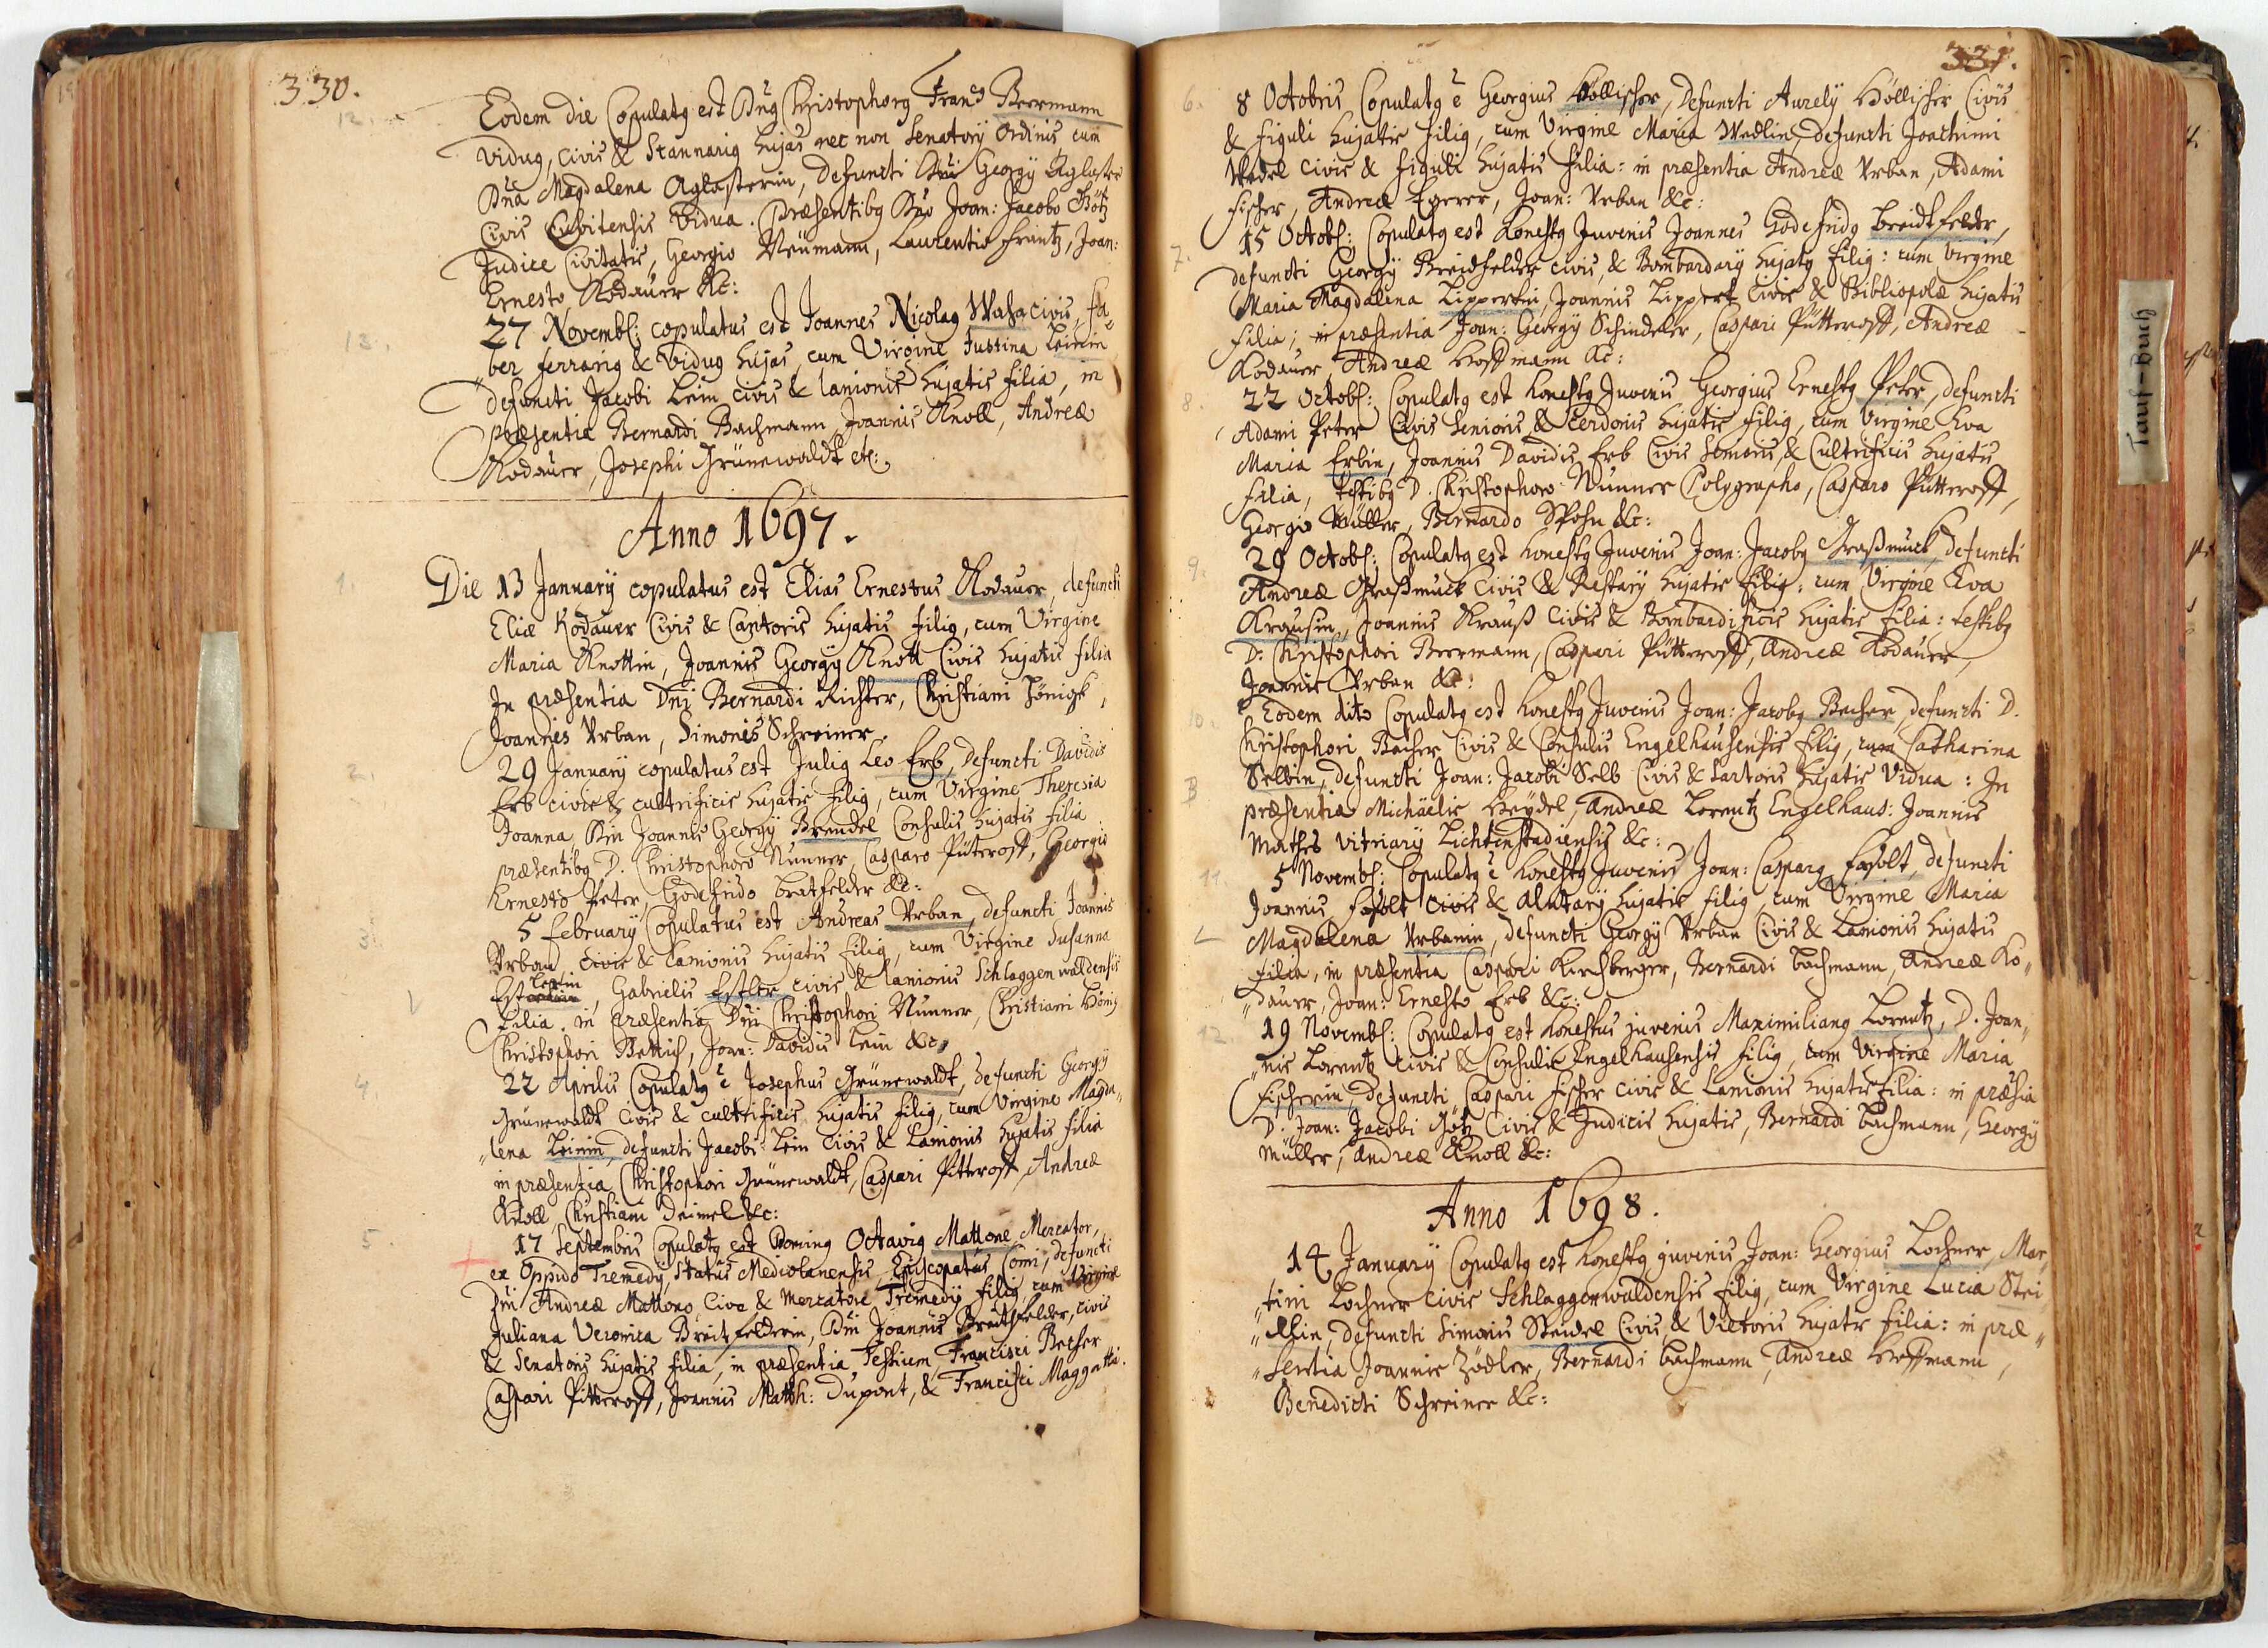 330.
12.
Eodem die Copulatq est Dnq Christophorq Franc Beermann
viduq, civis & Stannariq hujas nec non Senatorÿ Ordinis, cum
Dna Magdalena Aglasterin, defuncti Dni Georgÿ Aglaster
Civis Cubitensis Vidua. Præsentibq Dno Joan: Jacobo Götz
Judice Civitatis, Georgio Neümann, Laurentio Frantz, Joan:
Ernesto Kodauer &c:
13.
27 Novembr: copulatus est Joannes Nicolaq Waha civis, fa„
„ber ferrariq & Viduq hujas, cum Virgine Justina Leinin
defuncti Jacobi Lein civis & lanionis hujatis filia, in
præsentia Bernardi Bachmann, Joannis Knoll, Andreæ
Kodauer, Josephi Grünewaldt etc:
Anno 1697.
1.
Die 13 Januarÿ copulatus est Elias Ernestus Kodauer, defuncti
Eliæ Kodauer Civis & Cantoris hujatis filiq, cum Virgine
Maria Knottin, Joannis Georgÿ Knott Civis hujatis filia
In præsentia Dnj Bernardi Richter, Christiani Hönigk,
Joannis Urban, Simonis Schreiner.
2.
29 Januarÿ copulatus est Juliq Leo Erb, defuncti Davidis
Erb civis & cultrificis hujatis filiq, cum Virgine Theresia
Joanna, Dni Joannis Georgÿ Brendel Consulis hujatis filia
præsentibq D. Christophoro Nunner, Casparo Püteroff, Georgio
Ernesto Peter, Godefrido Bratfelder &c:
3.
5 februarÿ Copulatus est Andreas Urban, defuncti Joannis
Urban civis & Lanionis hujatis filiq, cum Virgine Susanna
Estlerin, Gabrielis Estler civis & lanionis Schlaggenwaldensis
filia. in præsentia Dni Christophori Nunner, Christiani Hönig
Christophori Bettich, Joan: Davidis Lein &c.
4.
22 Aprilis Copulatq è Josephus Grünewaldt, defuncti Georgÿ
Grünewaldt Civis & cultrificis hujatis filiq, cum Virgine Magda„
„lena Leinin, defuncti Jacobi Lein Civis & Lanionis hujatis filia
in præsentia Christophori Grünewaldt, Caspari Pitteroff, Andreæ
Knoll Christiani Deimel &c:
5.
17 Septembris Copulatq est Dominq Octaviq Mattone Mercator,
ex Oppido Tremedÿ, Statûs Mediolanensis, Episcopatûs Comi, defuncti
Dni Andreæ Mattono Cive & Mercatore Tremedÿ filiq cum Virgine
Juliana Veronica Breitfelderin, Dni Joannis Breithfelder, civis
& Senatoris hujatis filia, in præsentia Testium, Francisci Becher
Caspari Pitteroff, Joannis Matth: Dupont, & Francisci Maggatti.
331.
6.
8 Octobris Copulatq è Georgius Höllischer, defuncti Aurelÿ Höllischer Civis
& figuli hujatis filiq, cum Virgine Maria Wedlin, defuncti Joachimi
Wedel Civis & figuli hujatis filia: in præsentia Andreæ Urban, Adami
Fischer, Andreæ Egerer, Joan: Urban &c:
7.
15 Octobr: Copulatq est honestq Juvenis Joannes Godefridq Breidtfelder,
defuncti Georgÿ Breidfelder civis, & Bombardarÿ hujatq filiq: cum virgine
Maria Magdalena Lippertin, Joannis Lippert Civis & Bibliopolæ hujatis
filia; in præsentia Joan: Georgÿ Schindeler, Caspari Pütteroff, Andreæ
Kodauer, Andreæ Hoffmann &c:
8.
22 Octobr: Copulatq est honestq Juvenis Georgius Ernestq Peter, defuncti
Adami Peter Civis Senioris, & Cerdonis hujatis filiq, cum Virgine Eva
Maria Erbin, Joannis Davidis Erb Civis Senioris, & Cultrificis hujatis
filia, testibq D. Christophoro Nunner Polygrapho, Casparo Pütteroff,
Georgio Müller, Bernardo Spohn &c:
9.
29 Octobr: Copulatq est honestq Juvenis Joan: Jacobq Graßmuck, defuncti
Andreæ Graßmuck Civis & Restarÿ hujatis filiq: cum Virgine Eva
Krausin, Joannis Krauß Civis & Bombardificis hujatis filia: testibq
D: Christophori Beermann, Caspari Pütteroff, Andreæ Kodauer,
Joannis Urban &c:
10.
Eodem dito Copulatq est honestq Juvenis Joan: Jacobq Becher, defuncti D.
Christophori Becher Civis & Consulis Engelhausensis filiq, cum Catharina
Selbin, defuncti Joan: Jacobi Selb Civis & Sartoris hujatis Vidua: In
præsentia Michäelis Heydel, Andreæ Lorentz Engelhaus: Joannis
Mathes vitriarÿ Lichtenstadiensis &c:
11.
5 Novembr: Copulatq è honestq Juvenis Joan: Casparq Fasolt, defuncti
Joannis Fasolt Civis & Alutarÿ hujatis filiq, cum Virgine Maria
Magdalena Urbanin, defuncti Georgÿ Urban Civis & Lanionis hujatis
filia, in præsentia Caspari Kirchberger, Bernardi Bachmann, Andreæ Ko„
„dauer, Joan: Ernesto Erb &c:
12.
19 Novembr: Copulatq est honestus juvenis Maximilianq Lorentz, D. Joan„
„nis Lorentz Civis & Consulis Engelhausensis filiq, cum Virgine Maria
Fischerin, defuncti Caspari Fischer Civis & Lanionis hujatis filia: in præsia
D. Joan: Jacobi Götz Civis & Judicis hujatis, Bernardi Bachmann, Georgÿ
Müller, Andreæ Knoll &c:
Anno 1698.
14 Januarÿ Copulatq est honestq juvenis Joan: Georgius Lochner, Mar„
„tini Lochner civis Schlaggenwaldensis filiq, cum Virgine Lucia Stei
„dlin, defuncti Simonis Steidel Civis & Victoris hujatis filia: in præ„
„sentia Joannis Zödler, Bernardi Bachmann, Andreæ Hoffmann,
Benedicti Schreiner &c:
Tauf-Buch